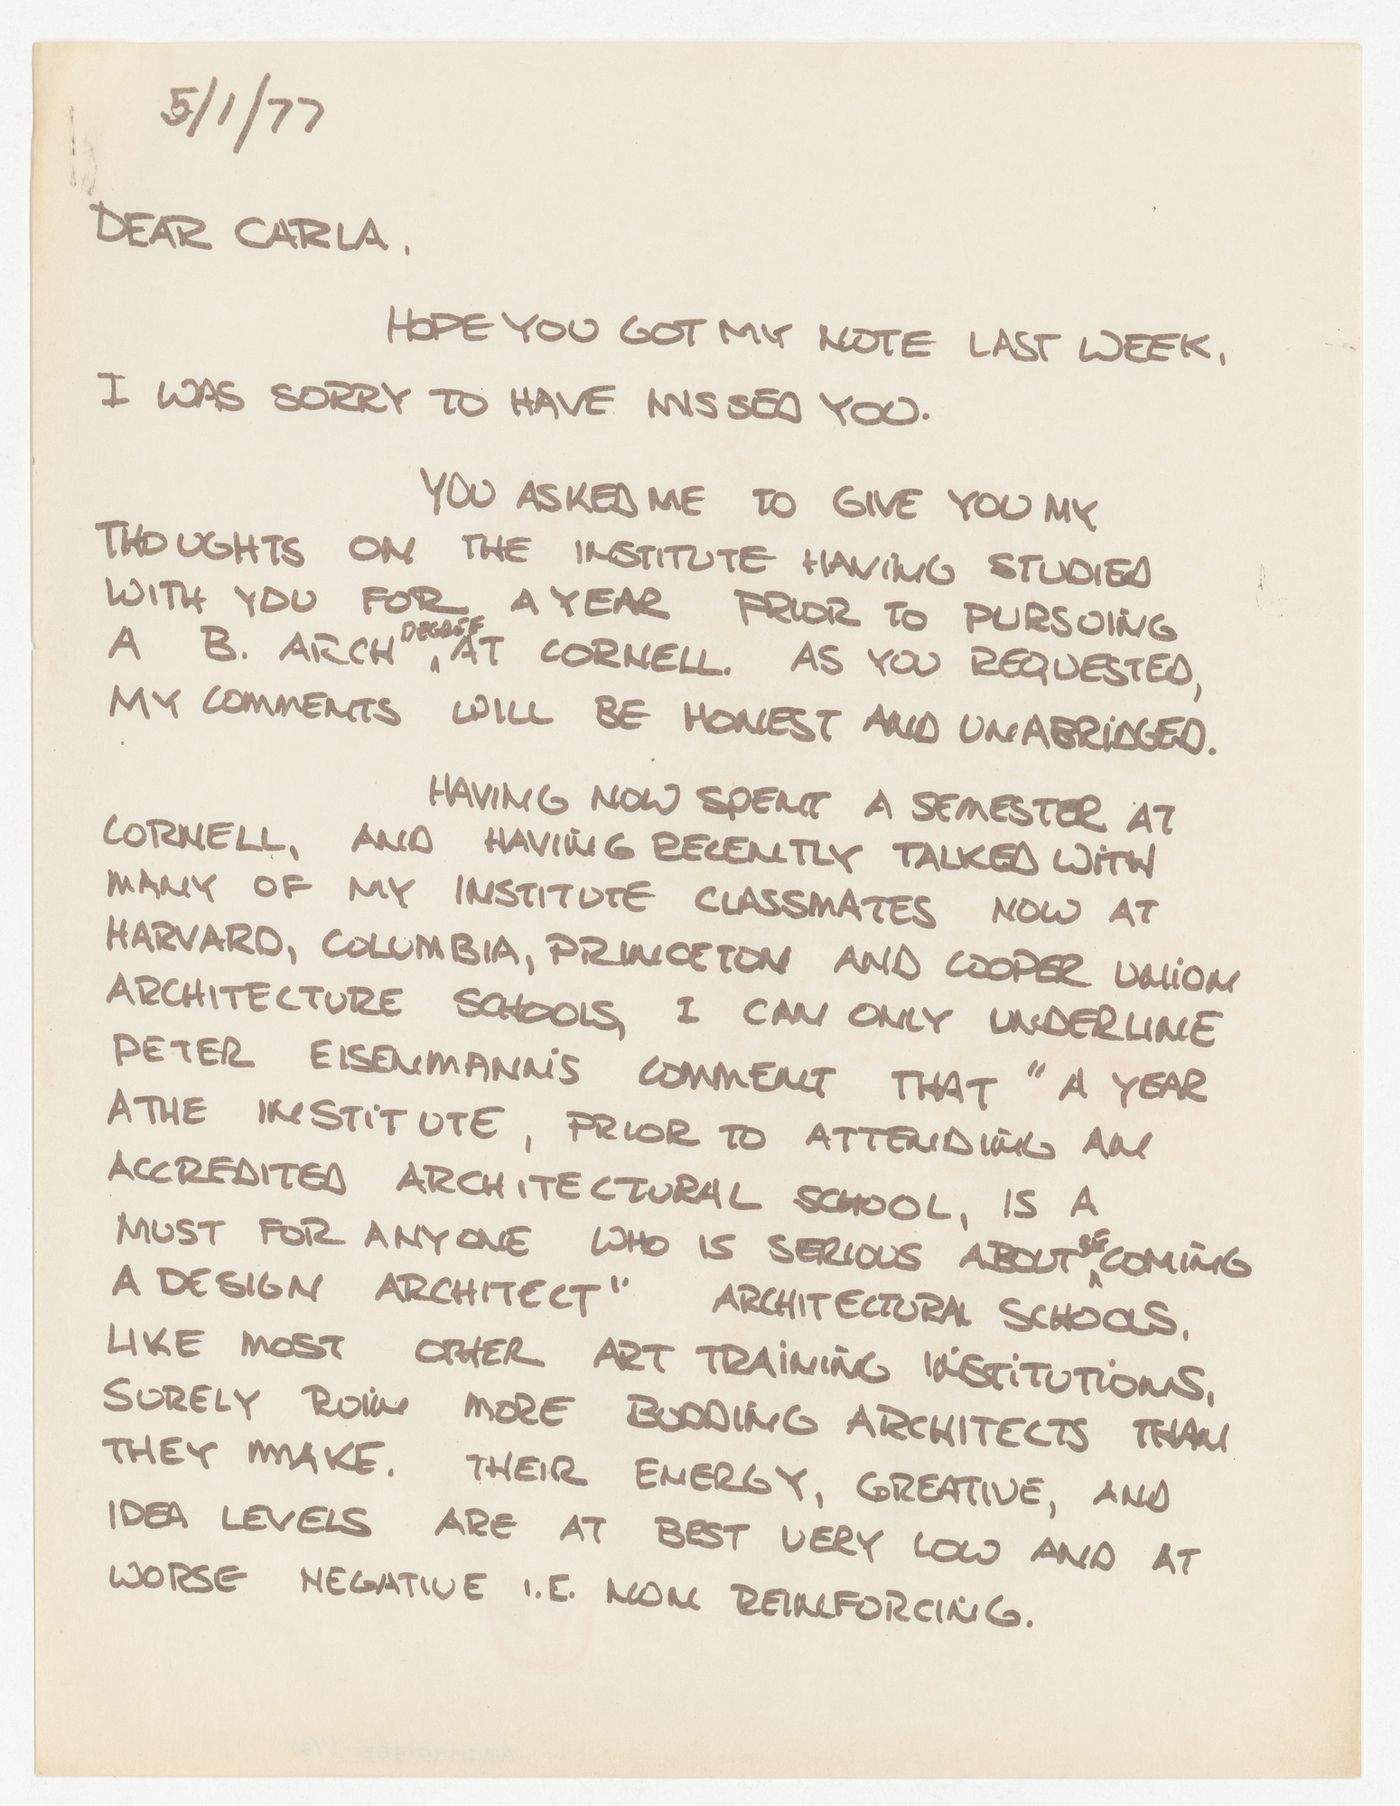 5/1/77
DEAR CARLA,
HOPE YOU GOT MY NOTE LAST WEEK,
I WAS SORRY TO HAVE MISSED YOU.
YOU ASKED ME TO GIVE YOU MY
THOUGHTS ON THE INSTITUTE HAVING STUDIED
WITH YOU FOR A YEAR PRIOR TO PURSUING
A B. ARCH DEGREE AT CORNELL. AS YOU REQUESTED,
MY COMMENTS WILL BE HONEST AND UNABRIDGED.
HAVING NOW SPENT A SEMESTER AT
CORNELL, AND HAVING RECENTLY TALKED WITH
MANY OF MY INSTITUTE CLASSMATES NOW AT
HARVARD, COLUMBIA, PRINCETON AND COOPER UNION
ARCHITECTURE SCHOOLS, I CAN ONLY UNDERLINE
PETER EISENMANN'S COMMENT THAT "A YEAR
ATHE INSTITUTE, PRIOR TO ATTENDING AN
ACCREDITED ARCHITECTURAL SCHOOL, IS A
MUST FOR ANYONE WHO IS SERIOUS ABOUT BECOMING
A DESIGN ARCHITECT" ARCHITECTURAL SCHOOLS,
LIKE MOST OTHER ART TRAINING INSTITUTIONS,
SURELY RUIN MORE BUDDING ARCHITECTS THAN
THEY MAKE. THEIR ENERGY, CREATIVE, AND
IDEA LEVELS ARE AT BEST VERY LOW AND AT
WORSE NEGATIVE I.E. NON REINFORCING.